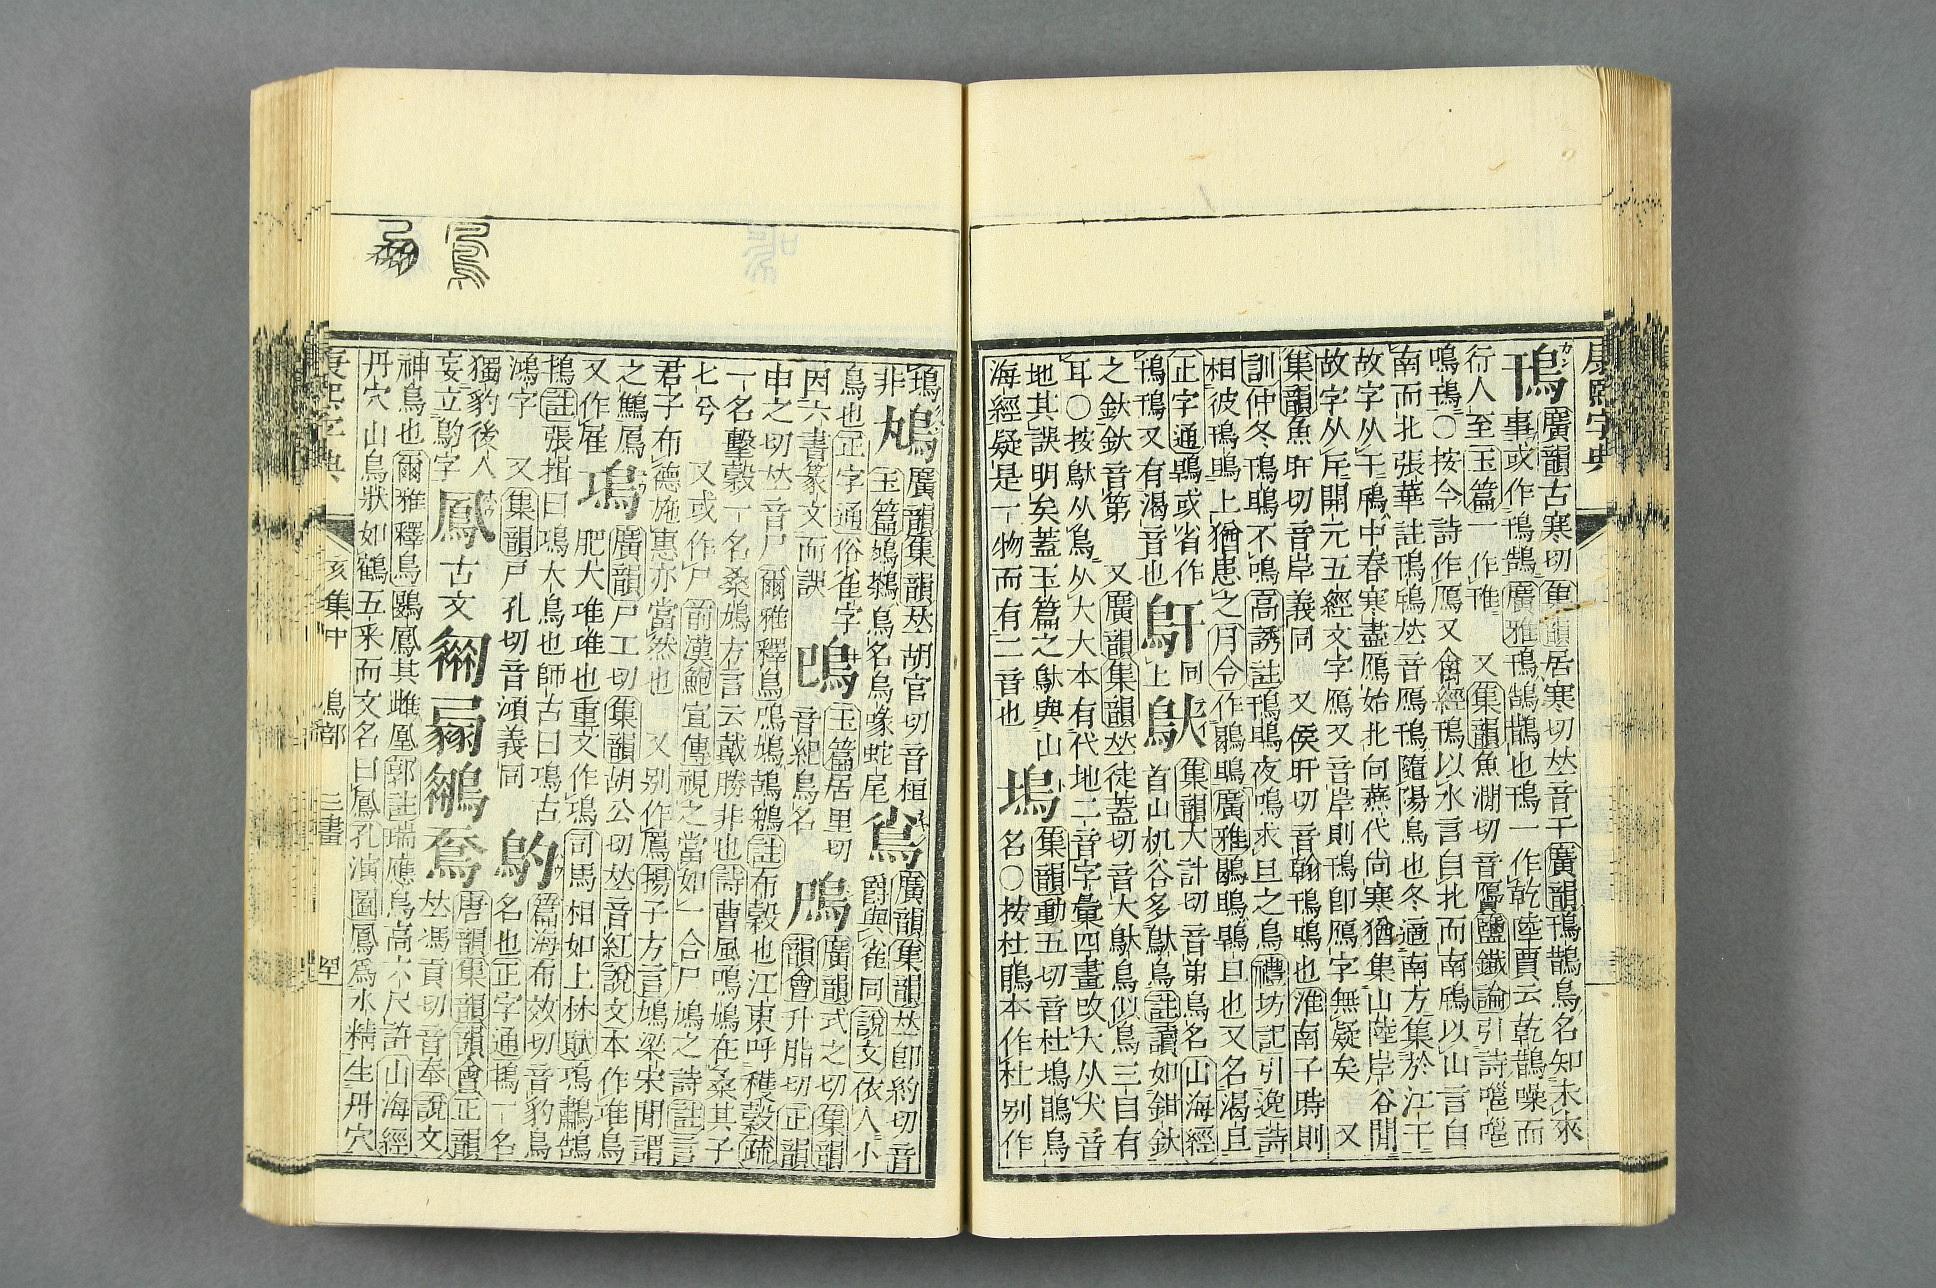 康熙字典
鳱 廣韻古寒切集韻居寒切𠀤音干廣韻鳱鵲鳥名知未來
事或作鳱鵠廣雅鳱鵠鵲也鳱一作乾陸賈云乾鵲噪而
行人至玉篇一作雃 又集韻魚澗切音鴈鹽鐵論引詩嗈嗈
鳴鳱○按今詩作鴈又禽經鳱以水言自北而南鳫以山言自
南而北張華註鳱鳫𠀤音鴈鳱隨陽鳥也冬適南方集於江干
故字从干鳫中春寒盡鴈始北向燕代尚寒猶集山陸岸谷閒
故字从厈開元五經文字鴈又音岸則鳱卽鴈字無疑矣 又
集韻魚旰切音岸義同 又侯旰切音翰鳱鳴也淮南子時則
訓仲冬鳱鴠不鳴高誘註鳱鴠夜鳴求旦之鳥禮坊記引逸詩
相彼鳱鴠上猶患之月令作鶡鴠廣雅鶡鴠鴠旦也又名渴旦
正字通鶡或省作鳽同上 䲥 集韻大計切音弟鳥名山海經
鳱鳱又有渴音也 首山机谷多䲦鳥註讀如鉗鈦
之鈦鈦音第 又廣韻集韻𠀤徒蓋切音大䲦鳥似烏三目有
耳○按䲦从鳥从大大本有代地二音字彙四畫改大从犬音
地其誤明矣蓋玉篇之䲦與山 集韻動五切音杜鳥
海經疑是一物而有二音也 名○按杜鵑本作杜别作
鳺非 鳩 廣韻集韻𠀤胡官切音桓 廣韻集韻𠀤卽約切音
玉篇鳩鷒鳥名鳥喙蛇尾 爵與雀同說文依人小
鳥也正字通俗雀字 玉篇居里切 廣韻式之切集韻
因六書篆文而誤 音紀鳥名 韻會升脂切正韻
申之切𠀤音尸爾雅釋鳥鳲鳩鴶鵴註布穀也江東呼穫穀疏
一名擊穀一名桑鳩方言云戴勝非也詩曹風鳲鳩在桑其子
七兮 又或作尸前漢鮑宣傳視之當如一合尸鳩之詩註言
君子布德施惠亦當然也 又别作鳲揚子方言鳩梁宋閒謂
之鷦鳫 鳿 廣韻戸工切集韻胡公切𠀤音紅說文本作琟鳥
又作雇 肥大琟琟也重文作鳿司馬相如上林賦鳿鷫鵠
鴇註張揖曰鳿大鳥也師古曰鳿古
鴻字 又集韻戸孔切音澒義同 篇海布效切音豹鳥
獨豹後人 名也正字通鴇一名
妄立䳈字 鳳 古文 唐韻集韻韻會正韻
𠀤馮貢切音奉說文
神鳥也爾雅釋鳥鶠鳳其雌凰郭註瑞應鳥高六尺許山海經
丹穴山鳥狀如鶴五采而文名曰鳳孔演圖鳳爲水精生丹穴
康熙字典 亥集中 鳥部 三畫